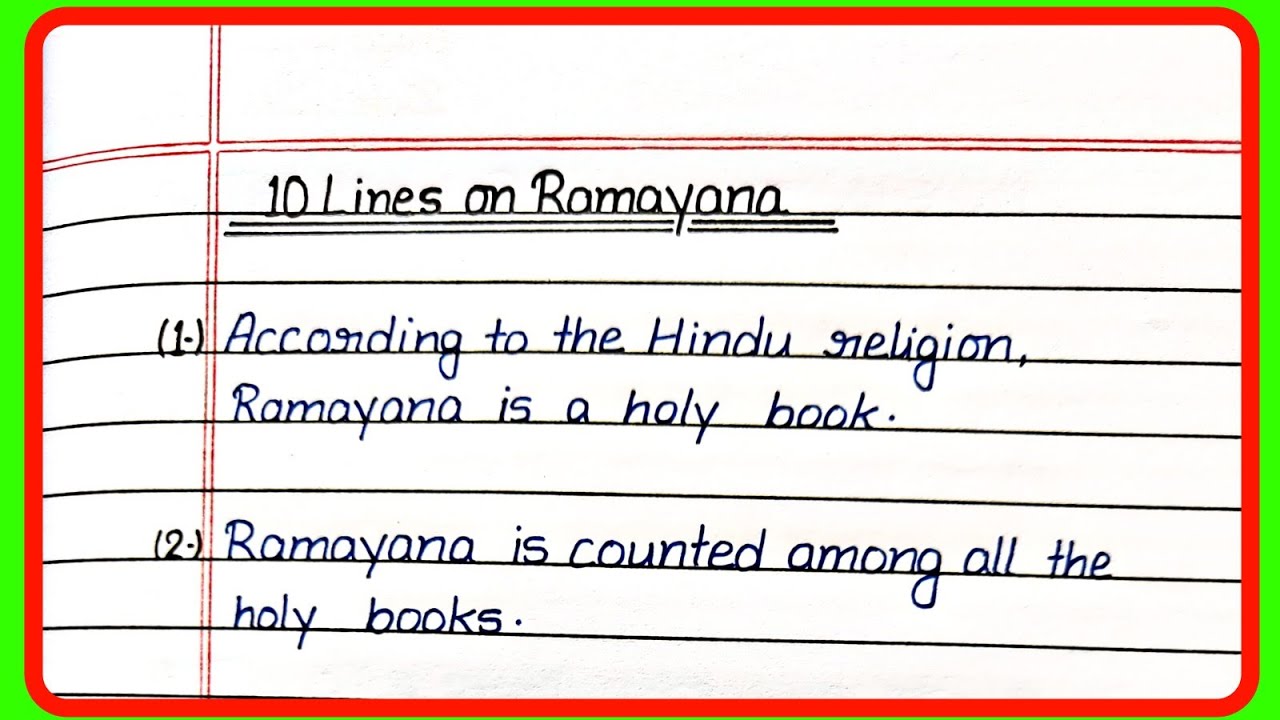 10 Lines on Ramayana
(1.) According to the Hindu religion,
Ramayana is a holy book.
(2.) Ramayana is counted among all the
holy books.